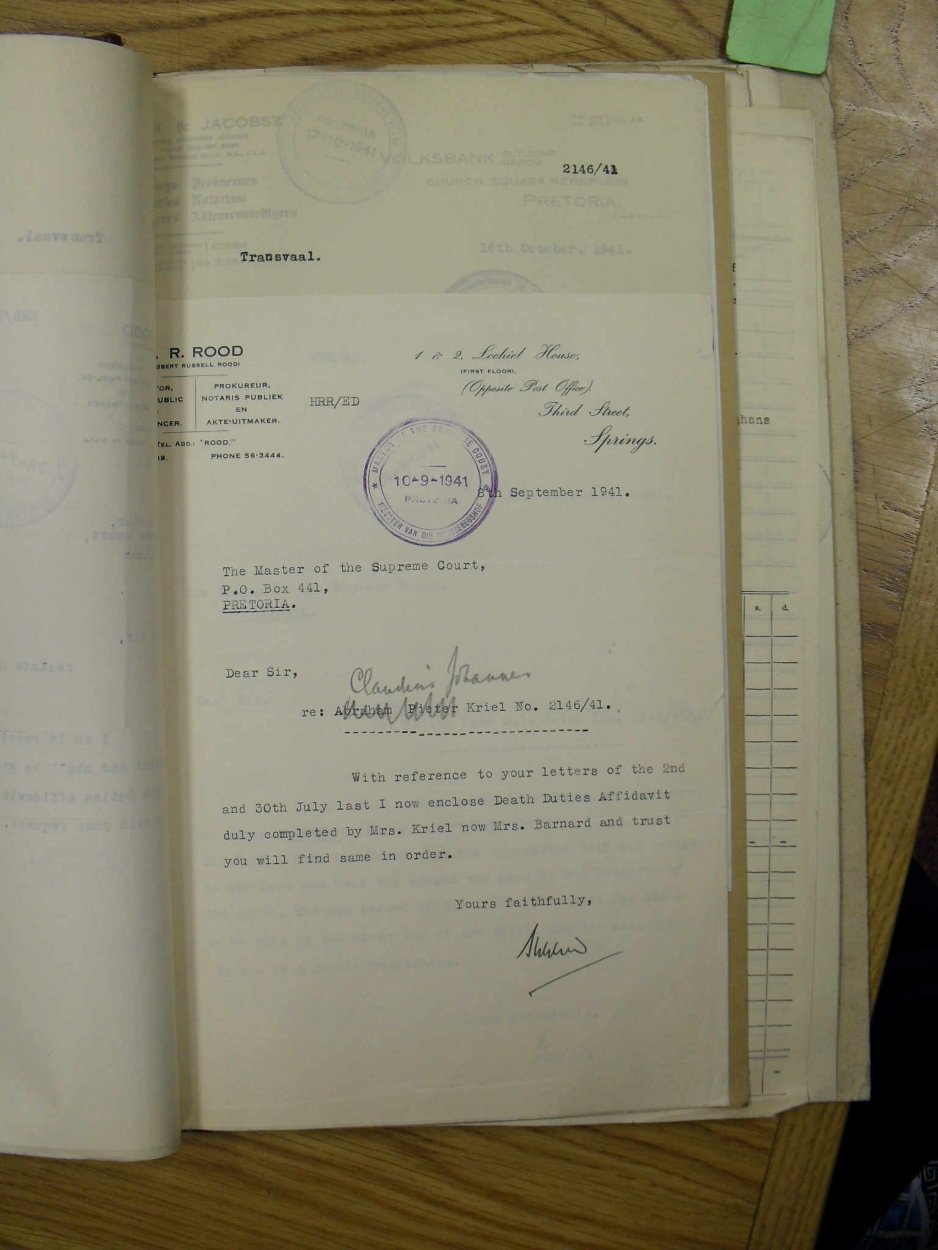 & JACOBSZ
PRETORIA
17-10-1941
VOLKSBANK BUILDING
GEBOU
2146/41
CHURCH SQUARE-KERKPLEIN
PRETORIA,
Prokureurs
Notarisse
Aktenvervaardigers
16th October, 1941.
Transvaal.
R. ROOD
BERT RUSSELL ROOD)
PROKUREUR,
NOTARIS PUBLIEK
EN
AKTE-UITMAKER.
TEL. ADD.: "ROOD."
PHONE 56-3444.
HRR/ED
1 & 2, Lochiel House,
(FIRST FLOOR),
(Opposite Post Office)
Third Street,
Springs.
10-9-1941
PRETORIA
8th September 1941.
The Master of the Supreme Court,
P.O. Box 441,
PRETORIA.
Dear Sir,
Claudius Johannes
re: Abraham Pieter Kriel No. 2146/41.
With reference to your letters of the 2nd
and 30th July last I now enclose Death Duties Affidavit
duly completed by Mrs. Kriel now Mrs. Barnard and trust
you will find same in order.
Yours faithfully,
s. d.